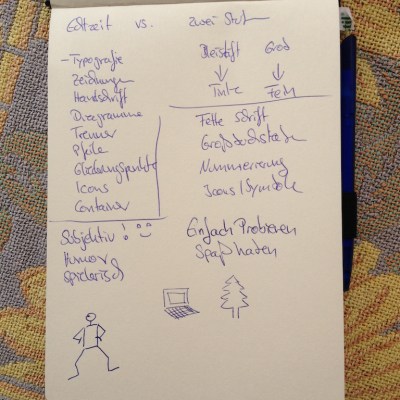 Echtzeit vs. Zwei Stufen
- Typografie
Zeichnungen
Handschrift
Diagramme
Trenner
Pfeile
Gliederungspunkte
Icons
Container
Bleistift Grob
Tinte Fein
Fette Schrift
Großbuchstaben
Nummerierung
Icons/Symbole
Subjektiv!
Humor
spielerisch
Einfach Probieren
Spaß haben